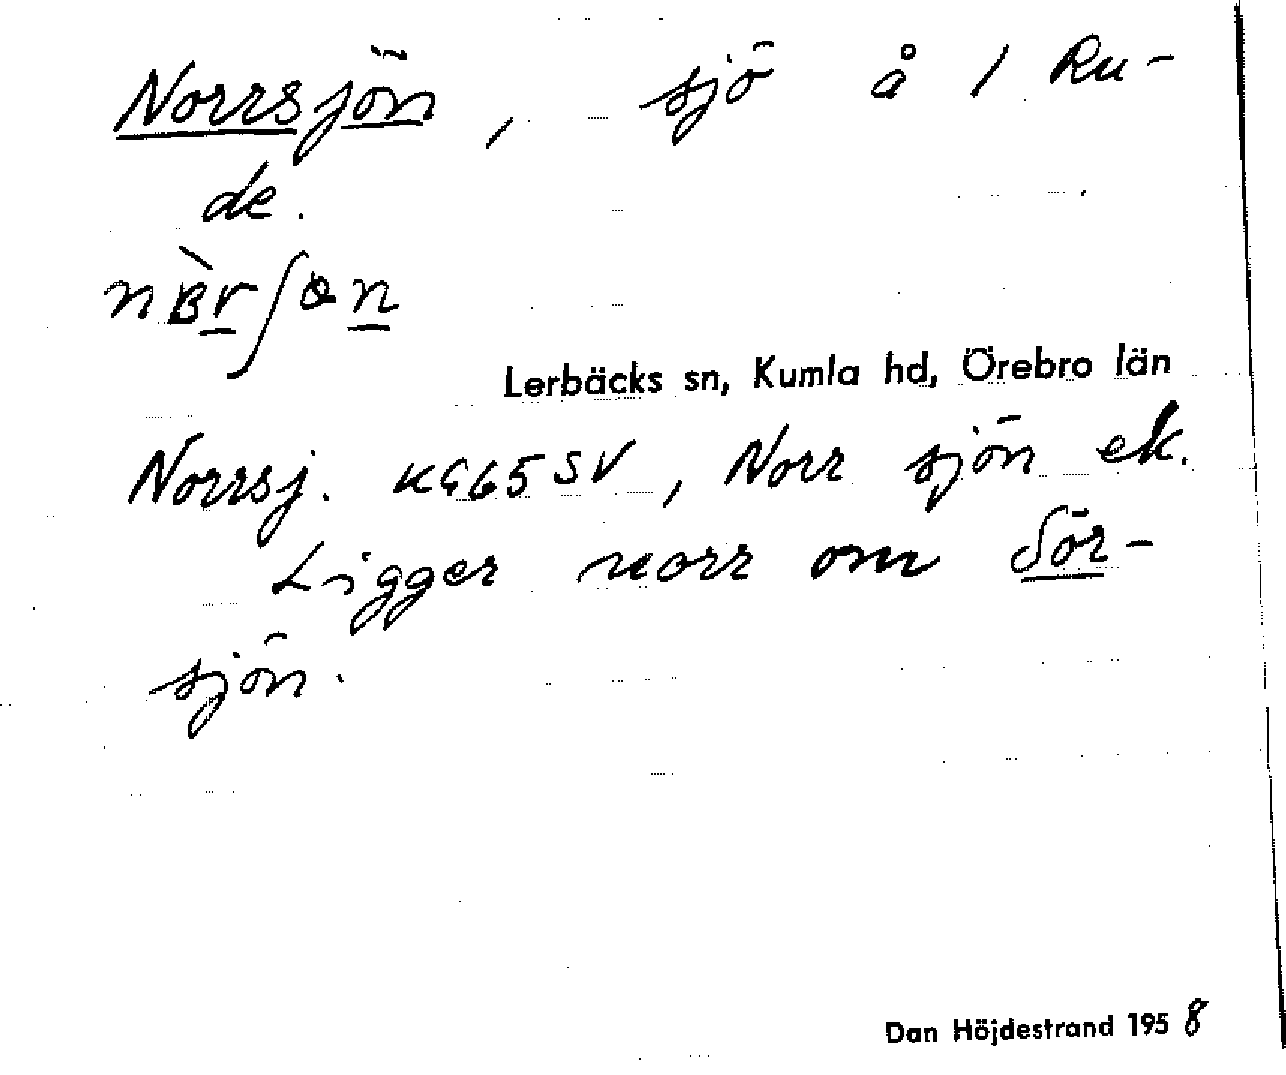 Norrsjön, sjö å 1 Ru-
de.
Lerbäcks sn, Kumla hd, Örebro län
Norrsj. KG65SV, Norr sjön ek.
Ligger norr om Sör-
sjön.
Dan Höjdestrand 1958